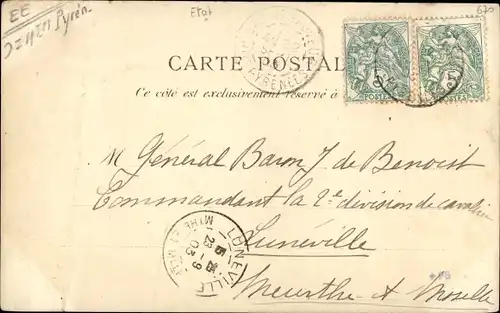 EE
Pyrén.
Etat
670
CARTE POSTAL
Ce côté est exclusivement réservé à
POSTES POSTES
M Général Baron J. de Benoist
Commandant la 2e division de cavalerie
Lunéville
Meurthe & Moselle
LUNEVILLE
23 - 9
03